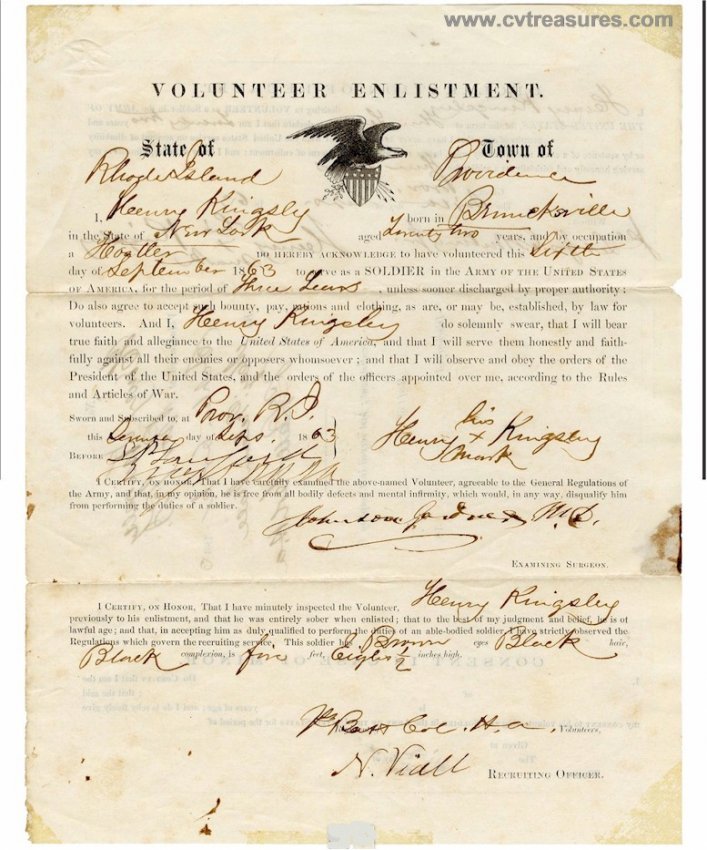 www.cvtreasures.com
VOLUNTEER ENLISTMENT.
State of Town of
Rhode Island Providence
I, Henry Kingsly born in
in the State of New York aged Twenty two years, and by occupation
a DO HEREBY ACKNOWLEDGE to have volunteered this Sixth
day of September 1863 to serve as a SOLDIER IN THE ARMY OF THE UNITED STATES
OF AMERICA, for the period of Three Years, unless sooner discharged by proper authority;
Do also agree to accept such bounty, pay, rations and clothing, as are, or may be, established, by law for
volunteers. And I, Henry Kingsley do solemnly swear, that I will bear
true faith and allegiance to the United States of America, and that I will serve them honestly and faith-
fully against all their enemies or opposers whomsoever; and that I will observe and obey the orders of the
President of the United States, and the orders of the officers appointed over me, according to the Rules
and Articles of War.
Sworn and Subscribed to, at Prov. R.I.
this day of Sept. 1863
his
Henry x Kingsley
mark
BEFORE
I CERTIFY, ON HONOR, That I have carefully examined the above-named Volunteer, agreeable to the General Regulations of
the Army, and that, in my opinion, he is free from all bodily defects and mental infirmity, which would, in any way, disqualify him
from performing the duties of a soldier.
Johnson Gardner M.D.
EXAMINING SURGEON.
I CERTIFY, ON HONOR, That I have minutely inspected the Volunteer, Henry Kingsley
previously to his enlistment, and that he was entirely sober when enlisted; that to the best of my judgment and belief, he is of
lawful age; and that, in accepting him as duly qualified to perform the duties of an able-bodied soldier, I have strictly observed the
Regulations which govern the recruiting service. This soldier has Brown eyes Black hair,
Black complexion, is five feet, Eight 1/2 inches high.
Col. H. a. Volunteers,
N. Viall
RECRUITING OFFICER.